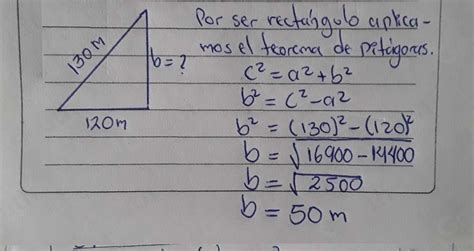 Por ser rectángulo aplica-
mos el teorema de pitágoras.
130m
b = ?
120m
c² = a² + b²
b² = c² - a²
b² = (130)² - (120)²
b = √16900 - 14400
b = √2500
b = 50 m